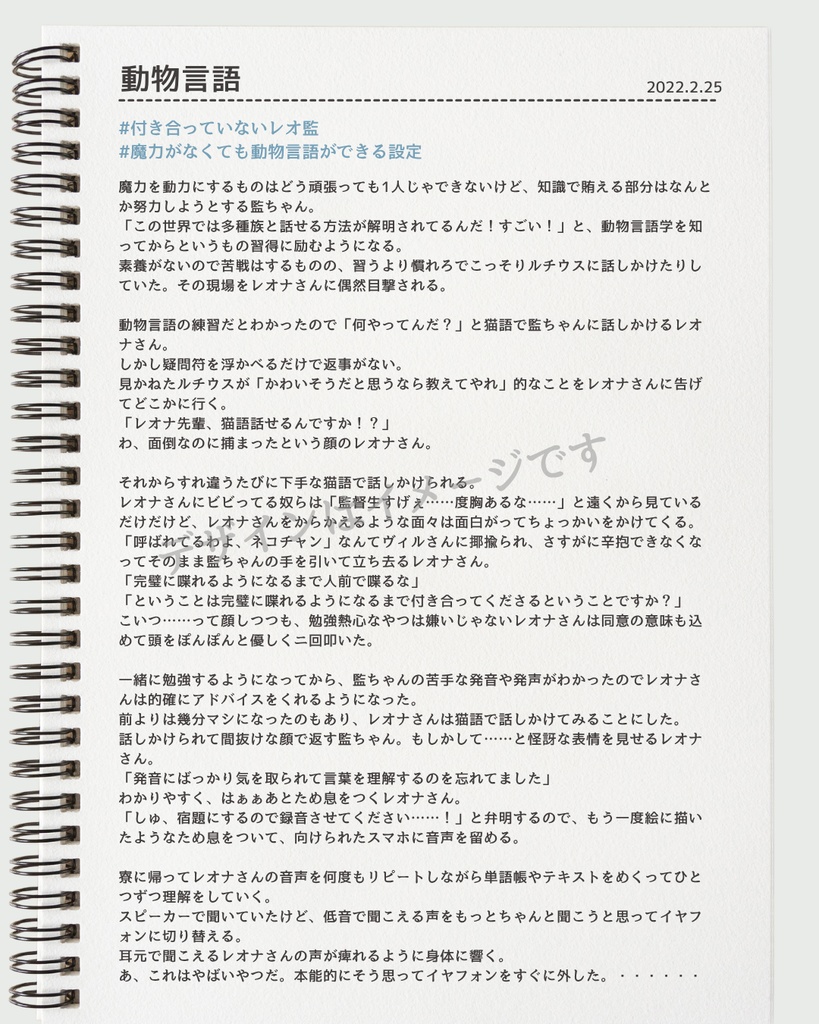 動物言語
2022.2.25
#付き合っていないレオ監
#魔力がなくても動物言語ができる設定
魔力を動力にするものはどう頑張っても1人じゃできないけど、知識で賄える部分はなんと
か努力しようとする監ちゃん。
「この世界では多種族と話せる方法が解明されてるんだ！すごい！」と、動物言語学を知
ってからというもの習得に励むようになる。
素養がないので苦戦はするものの、習うより慣れろでこっそりルチウスに話しかけたりし
ていた。その現場をレオナさんに偶然目撃される。
動物言語の練習だとわかったので「何やってんだ？」と猫語で監ちゃんに話しかけるレオ
ナさん。
しかし疑問符を浮かべるだけで返事がない。
見かねたルチウスが「かわいそうだと思うなら教えてやれ」的なことをレオナさんに告げ
てどこかに行く。
「レオナ先輩、猫語話せるんですか！？」
わ、面倒なのに捕まったという顔のレオナさん。
それからすれ違うたびに下手な猫語で話しかけられる。
レオナさんにビビってる奴らは「監督生すげぇ……度胸あるな……」と遠くから見ている
だけだけど、レオナさんをからかえるような面々は面白がってちょっかいをかけてくる。
「呼ばれてるわよ、ネコチャン」なんてヴィルさんに揶揄られ、さすがに辛抱できなくな
ってそのまま監ちゃんの手を引いて立ち去るレオナさん。
「完璧に喋れるようになるまで人前で喋るな」
「ということは完璧に喋れるようになるまで付き合ってくださるということですか？」
こいつ……って顔しつつも、勉強熱心なやつは嫌いじゃないレオナさんは同意の意味も込
めて頭をぽんぽんと優しく二回叩いた。
一緒に勉強するようになってから、監ちゃんの苦手な発音や発声がわかったのでレオナさ
んは的確にアドバイスをくれるようになった。
前よりは幾分マシになったのもあり、レオナさんは猫語で話しかけてみることにした。
話しかけられて間抜けな顔で返す監ちゃん。もしかして……と怪訝な表情を見せるレオナ
さん。
「発音にばっかり気を取られて言葉を理解するのを忘れてました」
わかりやすく、はぁぁあとため息をつくレオナさん。
「しゅ、宿題にするので録音させてください……！」と弁明するので、もう一度絵に描い
たようなため息をついて、向けられたスマホに音声を留める。
寮に帰ってレオナさんの音声を何度もリピートしながら単語帳やテキストをめくってひと
つずつ理解をしていく。
スピーカーで聞いていたけど、低音で聞こえる声をもっとちゃんと聞こうと思ってイヤフ
ォンに切り替える。
耳元で聞こえるレオナさんの声が痺れるように身体に響く。
あ、これはやばいやつだ。本能的にそう思ってイヤフォンをすぐに外した。・・・・・・
デザインはイメージです